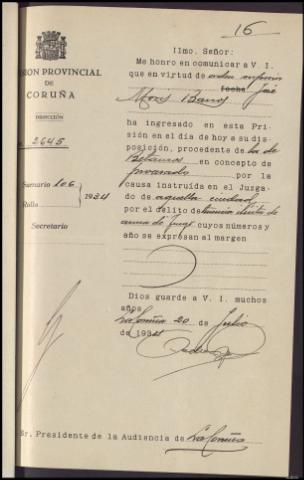 16
PRISION PROVINCIAL
DE
CORUÑA
DIRECCIÓN
2645
Sumario 106
Rollo
1934
Secretario
Ilmo. Señor:
Me honro en comunicar a V. I.
que en virtud de orden superior
fecha José
Mons Banos
ha ingresado en esta Pri
sión en el día de hoy a su dis
posición, procedente de la de
Betanzos en concepto de
procesado por la
causa instruída en el Juzga-
do de aquella ciudad
por el delito de tenencia ilícita de
arma de fuego cuyos números y
año se expresan al margen
Dios guarde a V. I. muchos
años
La Coruña 20 de Julio
de 1934
Sr. Presidente de la Audiencia de La Coruña